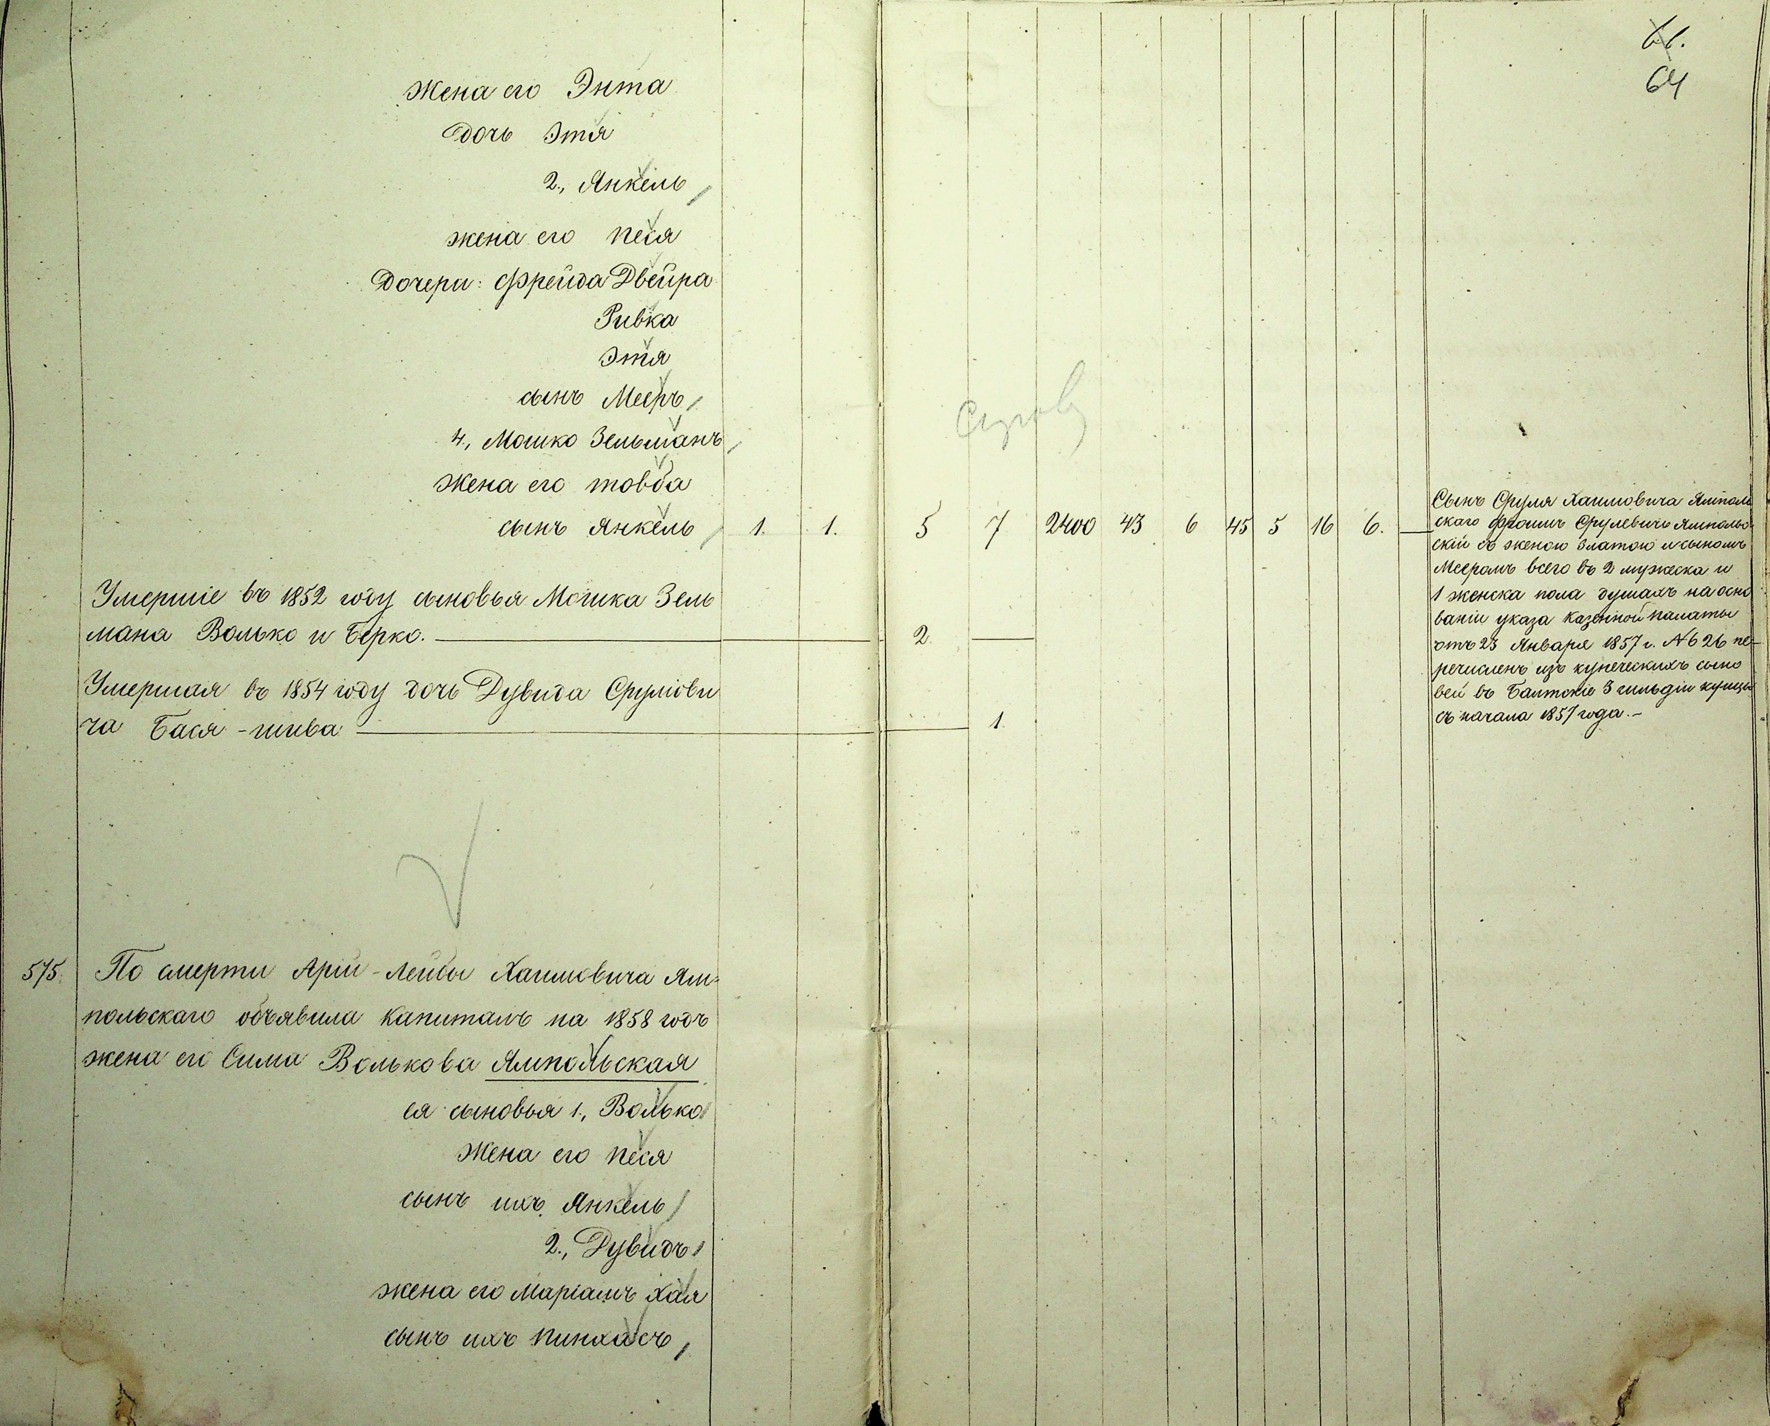 66.
64
Жена его Энта
Дочь Этя
2., Янкель
жена его Песя
Дочери: Фрейда Двейра
Ривка
Этя
сынъ Мееръ
4., Мошко Зельманъ
Жена его Товба
сынъ Янкель 1. 1. 5 7 2400 43 6 45 5 16 6.
Умершіе въ 1852 году сыновья Мошка Зель
мана Волько и Берко. 2
Умершая въ 1854 году дочь Дувида Срулiови
ча Бася-шива 1.
Сынъ Сруля Хаимовича Ямполь
скаго Фроимъ Срулевичъ Ямполь
скій съ женою Златою и сыномъ
Мееромъ всего въ 2 мужеска и
1 женска пола душахъ на осно
ваніи указа Казенной палаты
отъ 23 Января 1857 г. № 626 пе-
речисленъ изъ купеческихъ сыно
вей въ Балтскіе 3 гильдіи купцы
съ начала 1857 года.-
575. По смерти Арій-Лейбы Хаимовича Ям-
польскаго объявила капиталъ на 1858 годъ
жена его Сима Волькова Ямпольская
ея сыновья 1., Волько
Жена его Песя
сынъ ихъ Янкель
2., Дувидъ
жена его Маріамъ Хая
сынъ ихъ Пинхасъ